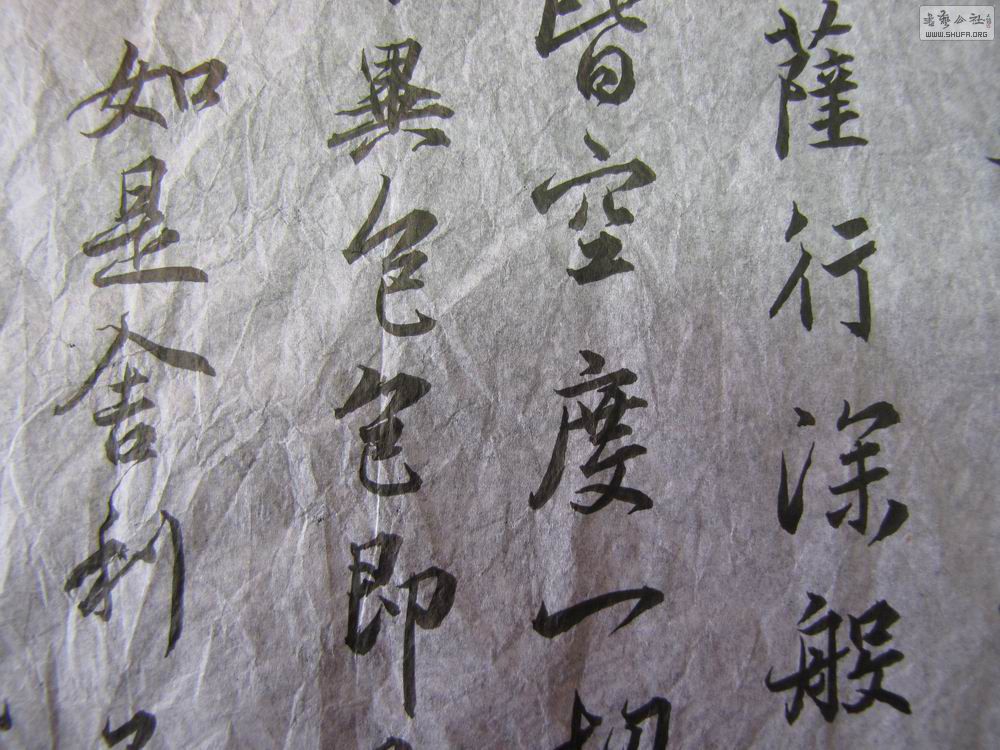 薩行深般
皆空度一切
異色色即
如是舍利
書藝公社
WWW.SHUFA.ORG